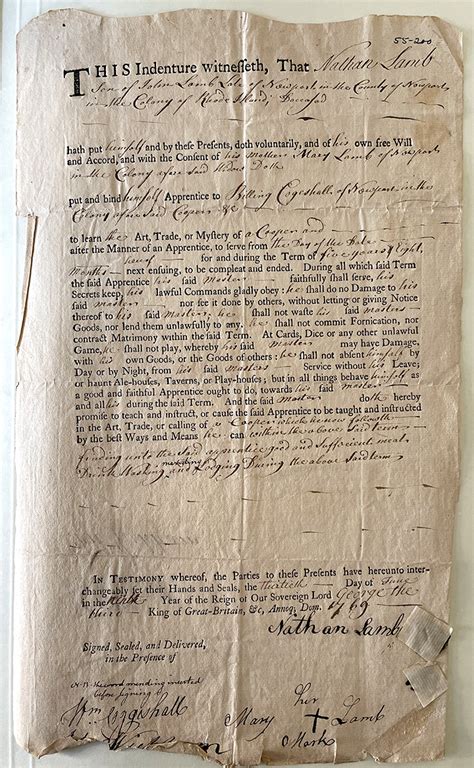 55-200
THIS Indenture witnesseth, That Nathan Lamb
Son of John Lamb Late of Newport in the County of Newport
in the Colony of Rhode Island Deceased
hath put himself and by these Presents, doth voluntarily, and of his own free Will
and Accord, and with the Consent of his mother Mary Lamb of Newport
in the Colony afore Said Widow Doth
put and bind himself Apprentice to Billing Cogeshall of Newport in the
Colony afore Said Cooper &c
to learn the Art, Trade, or Mystery of a Cooper and
after the Manner of an Apprentice, to serve from the Day of the Date
hereof for and during the Term of five years Eight
Months next ensuing, to be compleat and ended. During all which said Term
the said Apprentice his said Master faithfully shall serve, his
Secrets keep, his lawful Commands gladly obey: he shall do no Damage to his
said master nor see it done by others, without letting or giving Notice
thereof to his said master. he shall not waste his said masters
Goods, nor lend them unlawfully to any. he shall not commit Fornication, nor
contract Matrimony within the said Term. At Cards, Dice or any other unlawful
Game, he shall not play, whereby his said master may have Damage,
with his own Goods, or the Goods of others: he shall not absent himself by
Day or by Night, from his said masters Service without his Leave;
or haunt Ale-houses, Taverns, or Play-houses; but in all things behave himself as
a good and faithful Apprentice ought to do, towards his said master
and all his during the said Term. And the said master doth hereby
promise to teach and instruct, or cause the said Apprentice to be taught and instructed
in the Art, Trade, or calling of a Cooper which he now followeth
by the best Ways and Means he can within the above Said term
finding unto the Said apprentice good and Sufficient meat
mending
Drink Washing and Lodging During the above Said term
IN TESTIMONY whereof, the Parties to these Presents have hereunto inter-
changeably set their Hands and Seals, the thirtieth Day of June
in the Ninth Year of the Reign of Our Sovereign Lord George the
third King of Great-Britain, &c, Annoq; Dom. 1769
Nathan Lamb
Signed, Sealed, and Delivered,
in the Presence of
NB the word mending inserted
before signing
Wm Coggeshall
her
Mary + Lamb
Mark